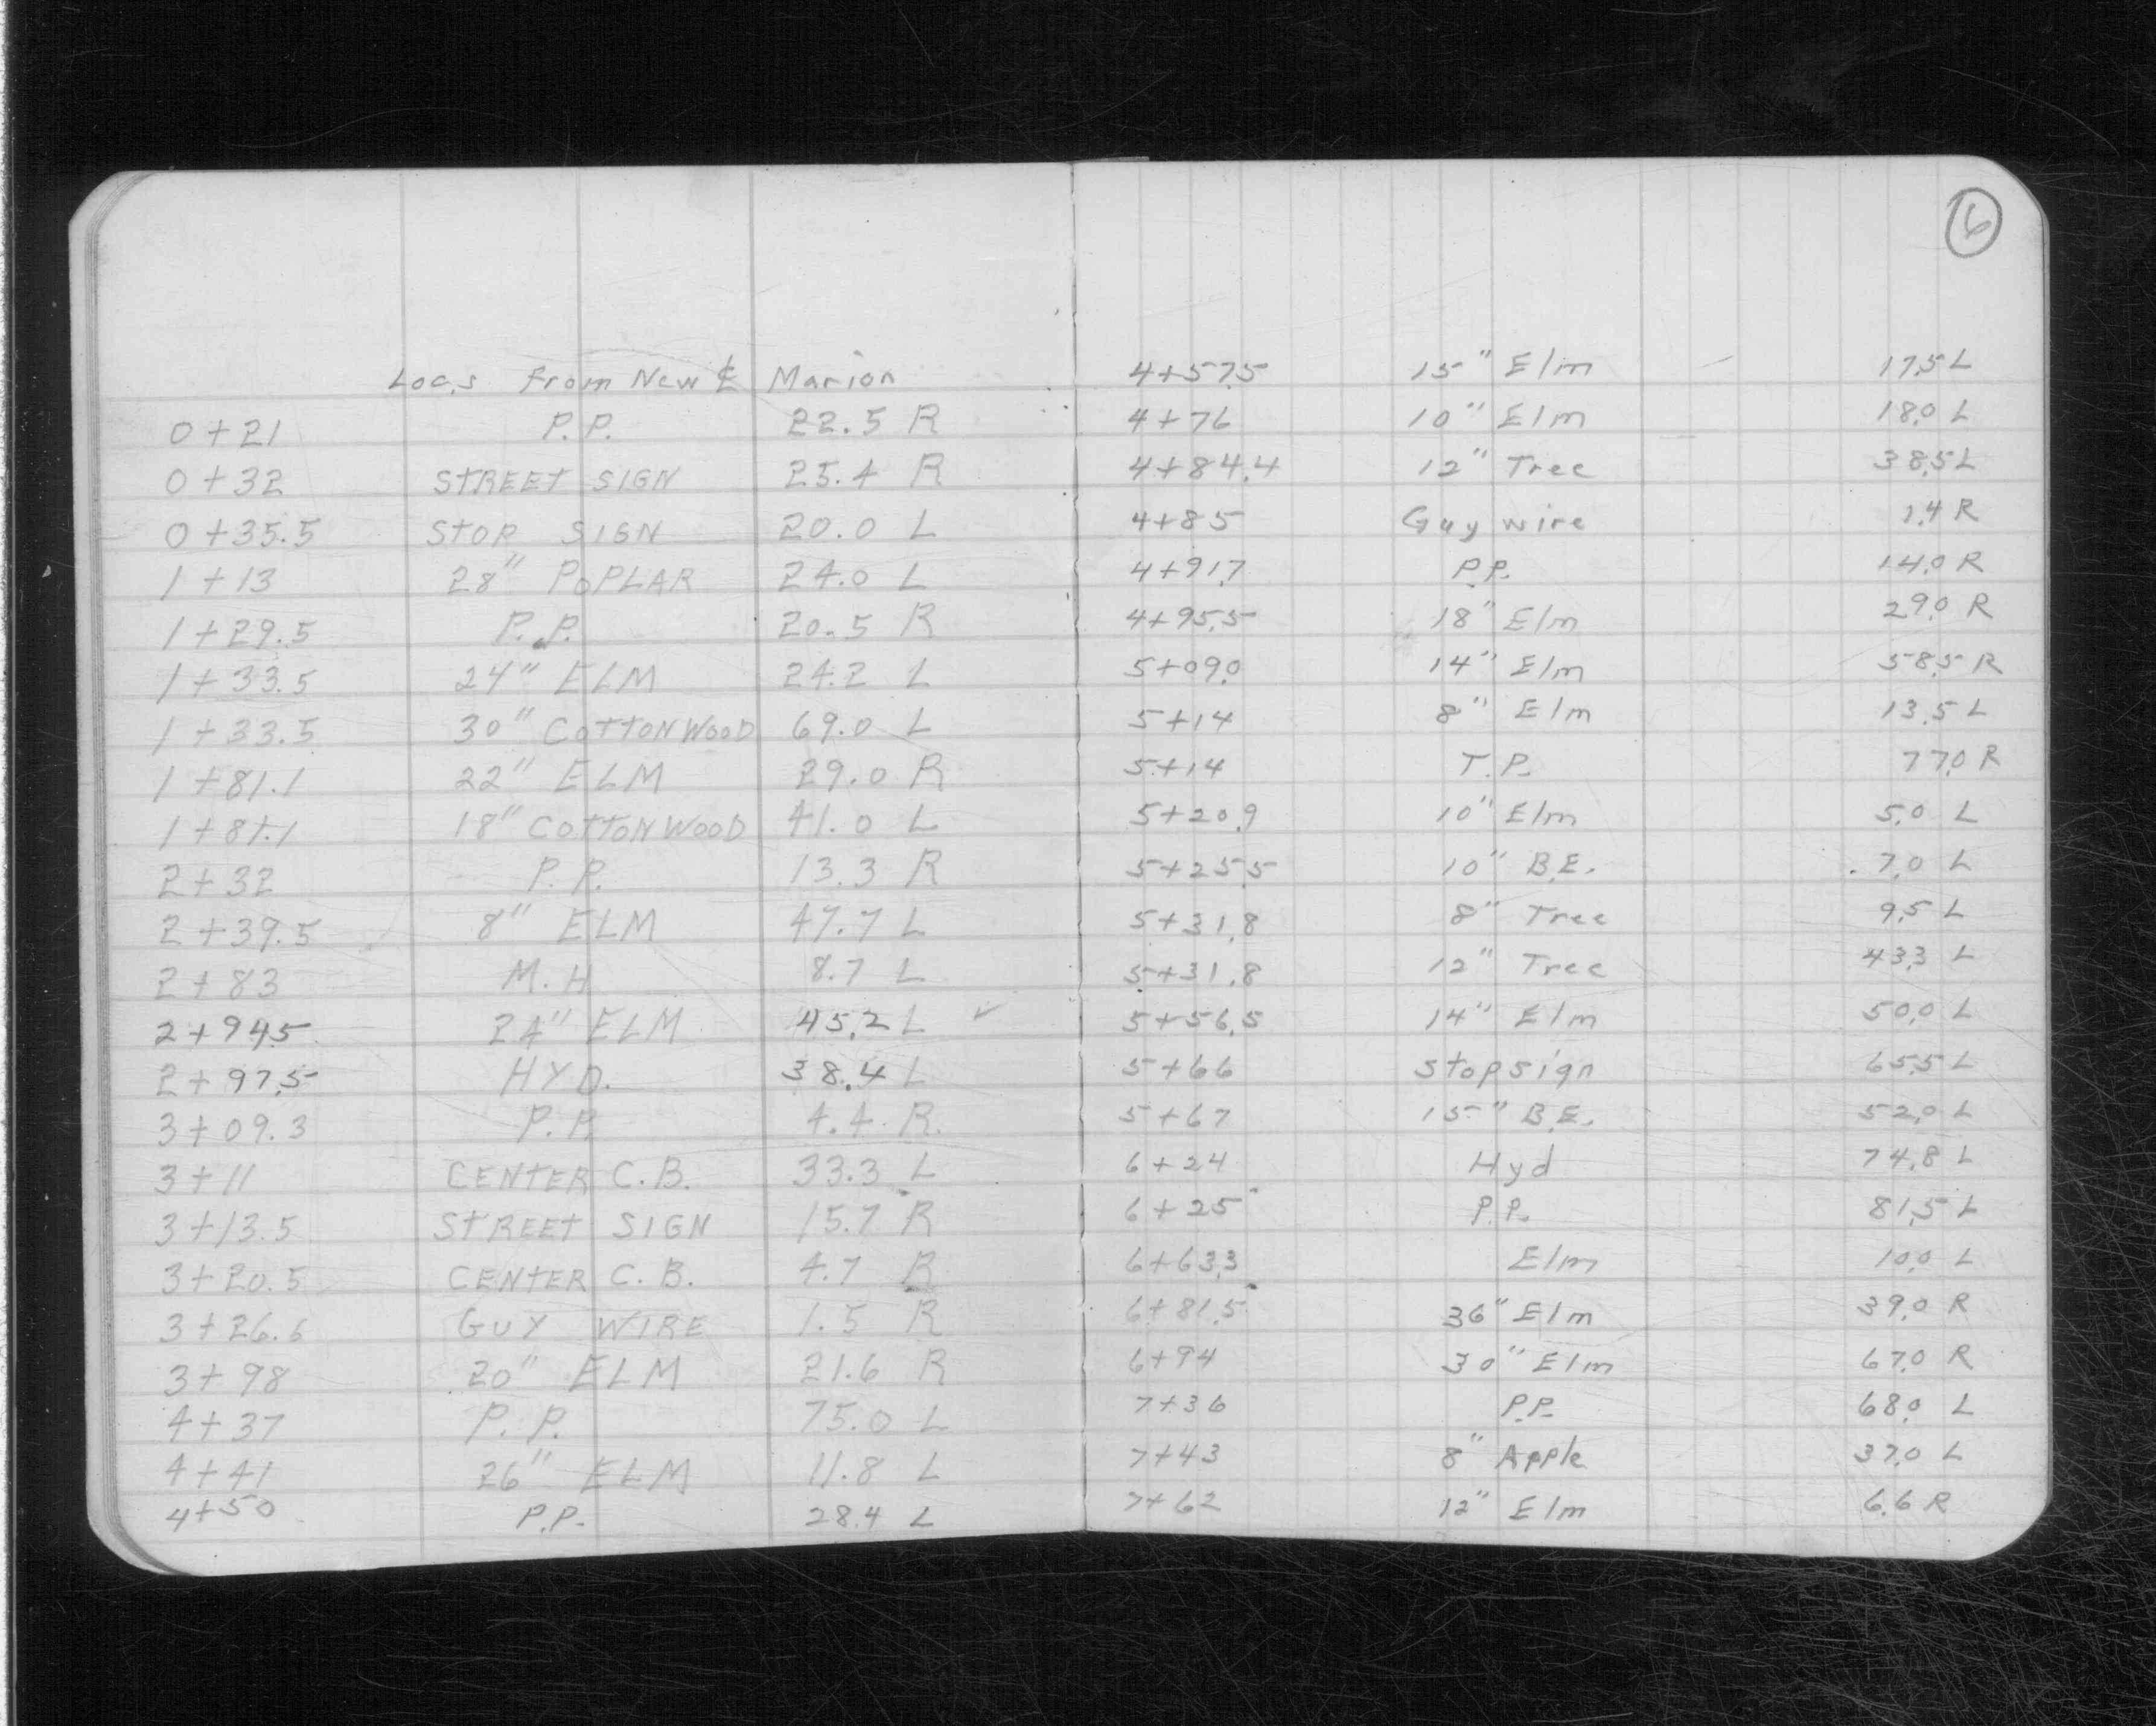 Loc.s From New ℄ Marion
0+21 P.P. 22.5 R
0+32 STREET SIGN 25.4 R
0+35.5 STOP SIGN 20.0 L
1+13 28" POPLAR 24.0 L
1+29.5 P.P. 20.5 R
1+33.5 24" ELM 24.2 L
1+33.5 30" COTTONWOOD 69.0 L
1+81.1 22" ELM 29.0 R
1+81.1 18" COTTONWOOD 41.0 L
2+32 P.P. 13.3 R
2+39.5 8" ELM 47.7 L
2+83 M.H. 8.7 L
2+94.5 24" ELM 45.2 L ✓
2+97.5 HYD. 38.4 L
3+09.3 P.P. 4.4 R.
3+11 CENTER C.B. 33.3 L
3+13.5 STREET SIGN 15.7 R
3+20.5 CENTER C.B. 4.7 R
3+26.6 GUY WIRE 1.5 R
3+98 20" ELM 21.6 R
4+37 P.P. 75.0 L
4+41 26" ELM 11.8 L
4+50 P.P. 28.4 L
6
4+57.5 15" Elm 17.5 L
4+76 10" Elm 18.0 L
4+84.4 12" Tree 38.5 L
4+85 Guy wire 1.4 R
4+91.7 P.P. 14.0 R
4+95.5 18" Elm 29.0 R
5+09.0 14" Elm 58.5 R
5+14 8" Elm 13.5 L
5+14 T.P. 77.0 R
5+20.9 10" Elm 5.0 L
5+25.5 10" B.E. 7.0 L
5+31.8 8" Tree 9.5 L
5+31.8 12" Tree 43.3 L
5+56.5 14" Elm 50.0 L
5+66 stop sign 65.5 L
5+67 15" B.E. 52.0 L
6+24 Hyd 74.8 L
6+25 P.P. 81.5 L
6+63.3 Elm 10.0 L
6+81.5 36" Elm 39.0 R
6+94 30" Elm 67.0 R
7+36 P.P. 68.0 L
7+43 8" Apple 37.0 L
7+62 12" Elm 6.6 R